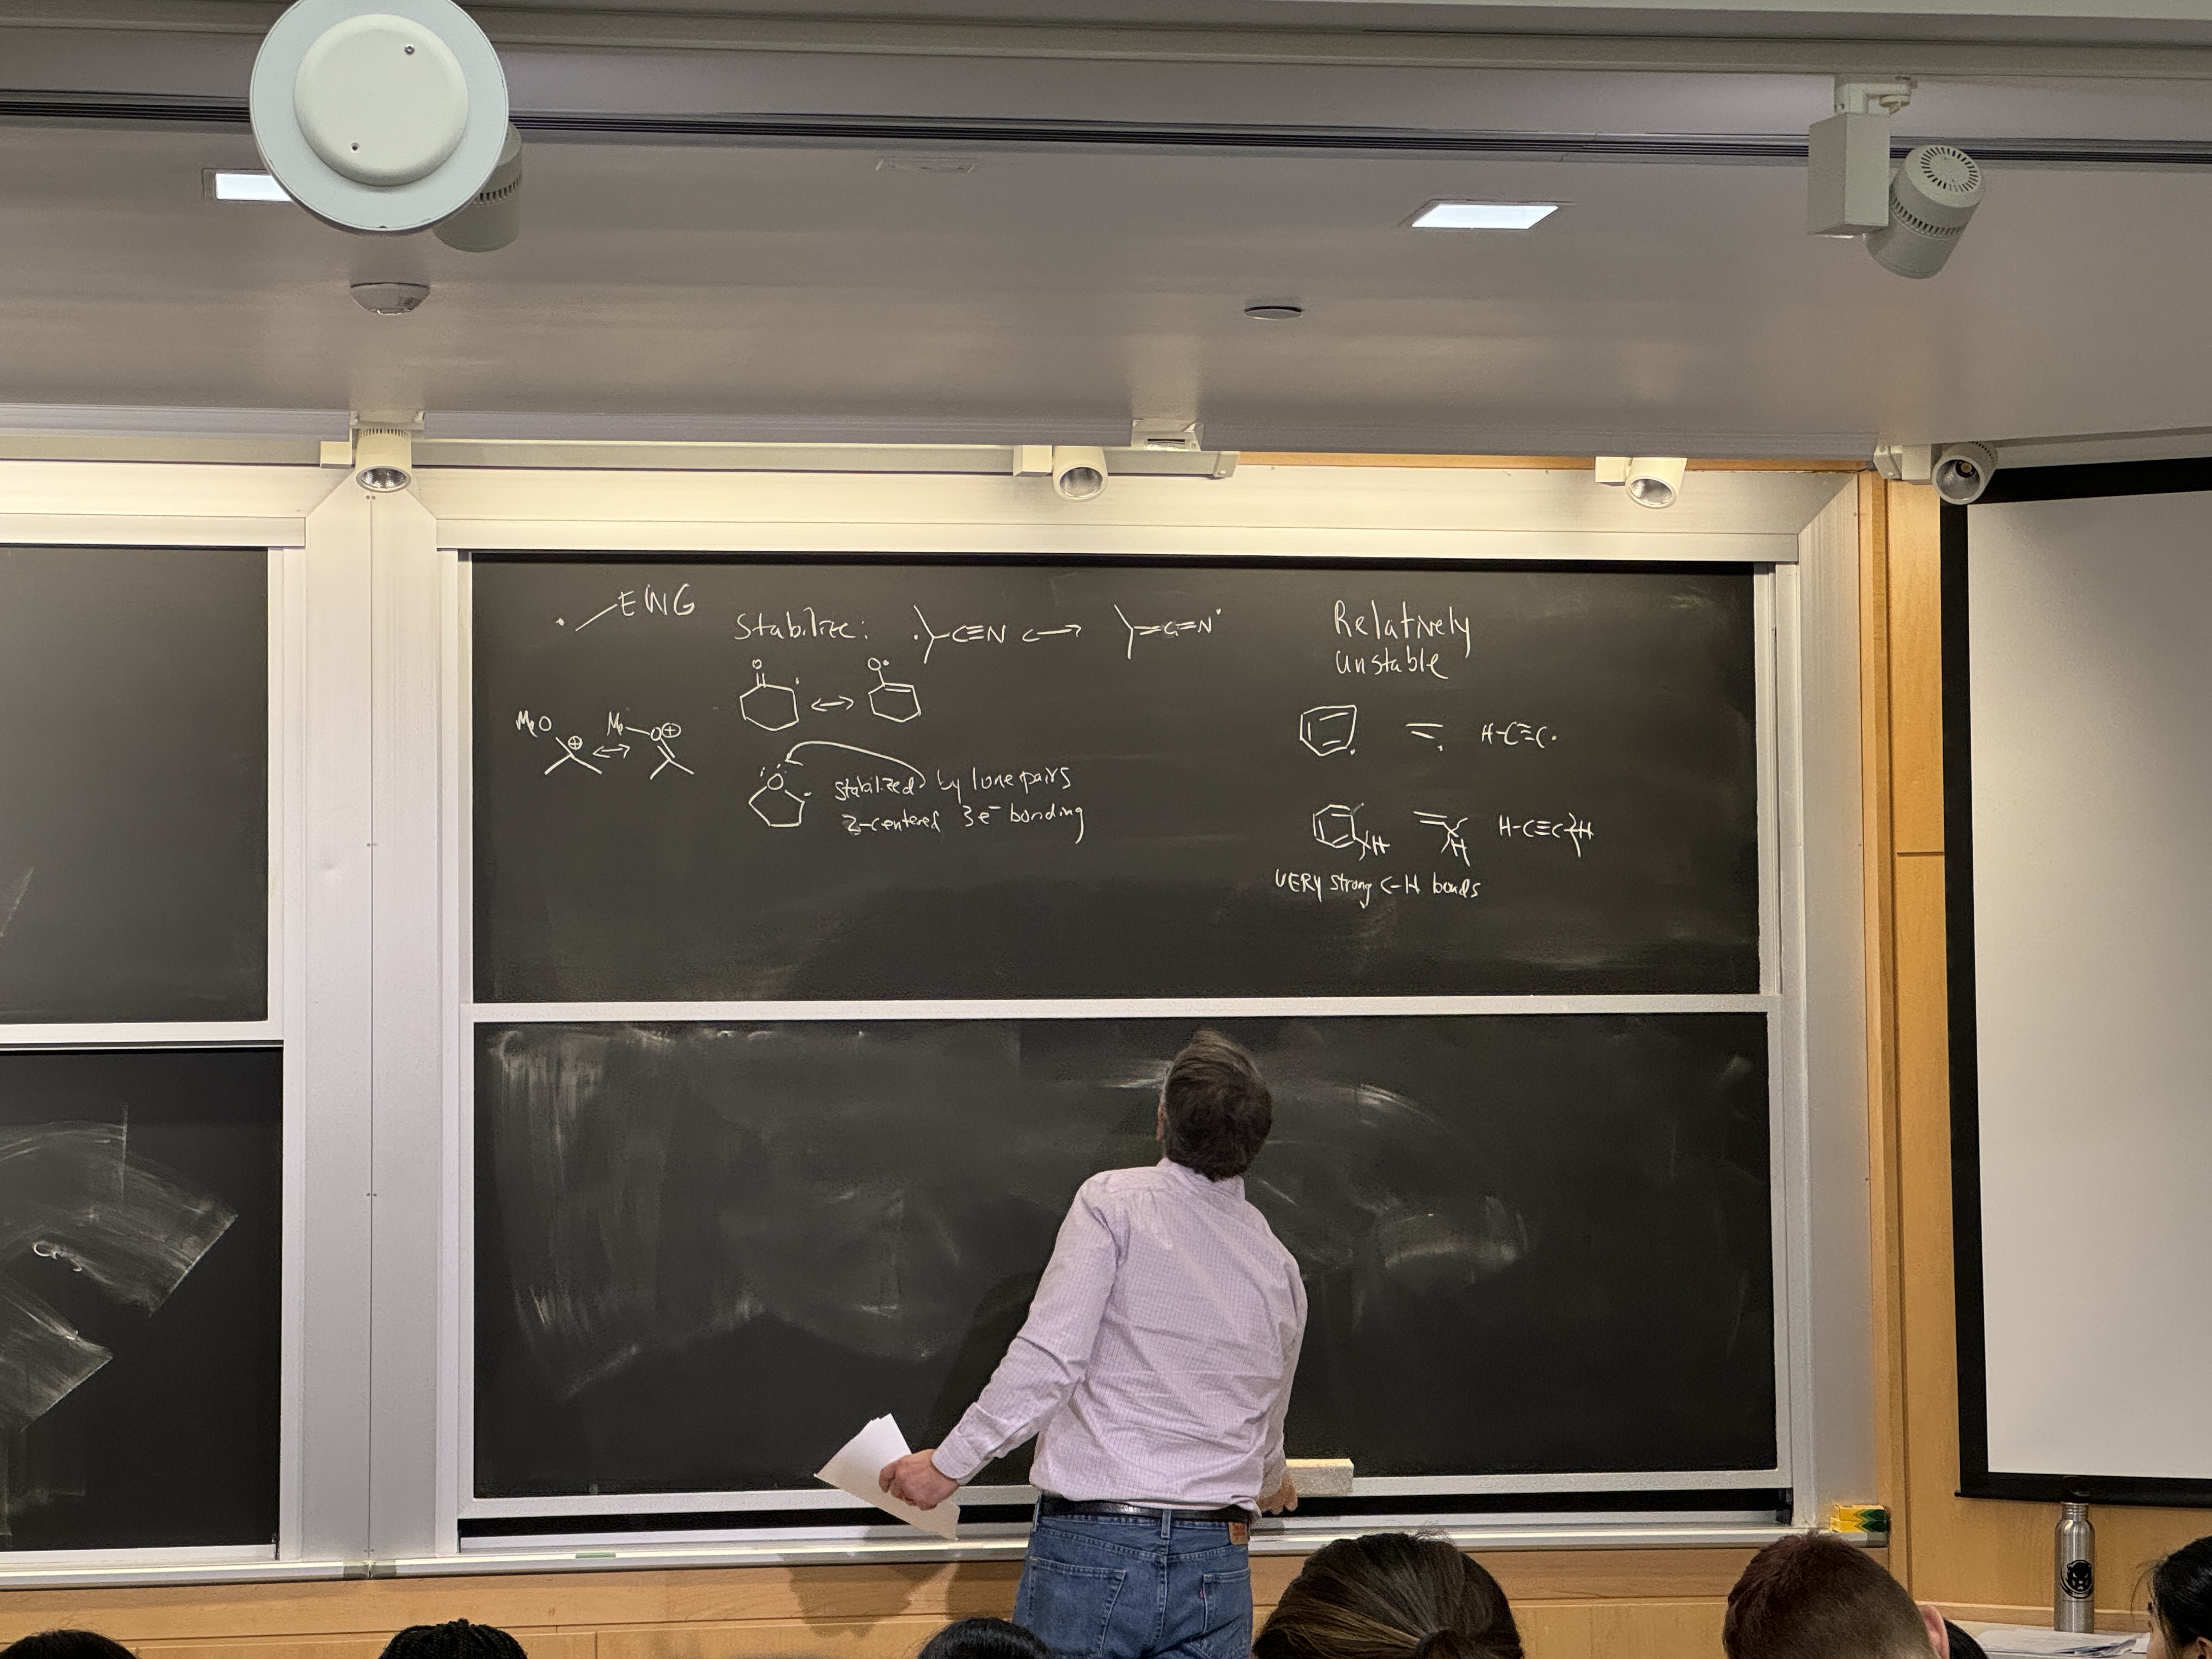 EWG
Stabilize: ·C≡N ↔ =C=N·
O O·
↔
MeO ⊕ ↔ Me-O⊕
:O: stabilized by lone pairs
2-centered 3e⁻ bonding
Relatively
unstable
H-C≡C·
H H H-C≡C-H
VERY strong C-H bonds